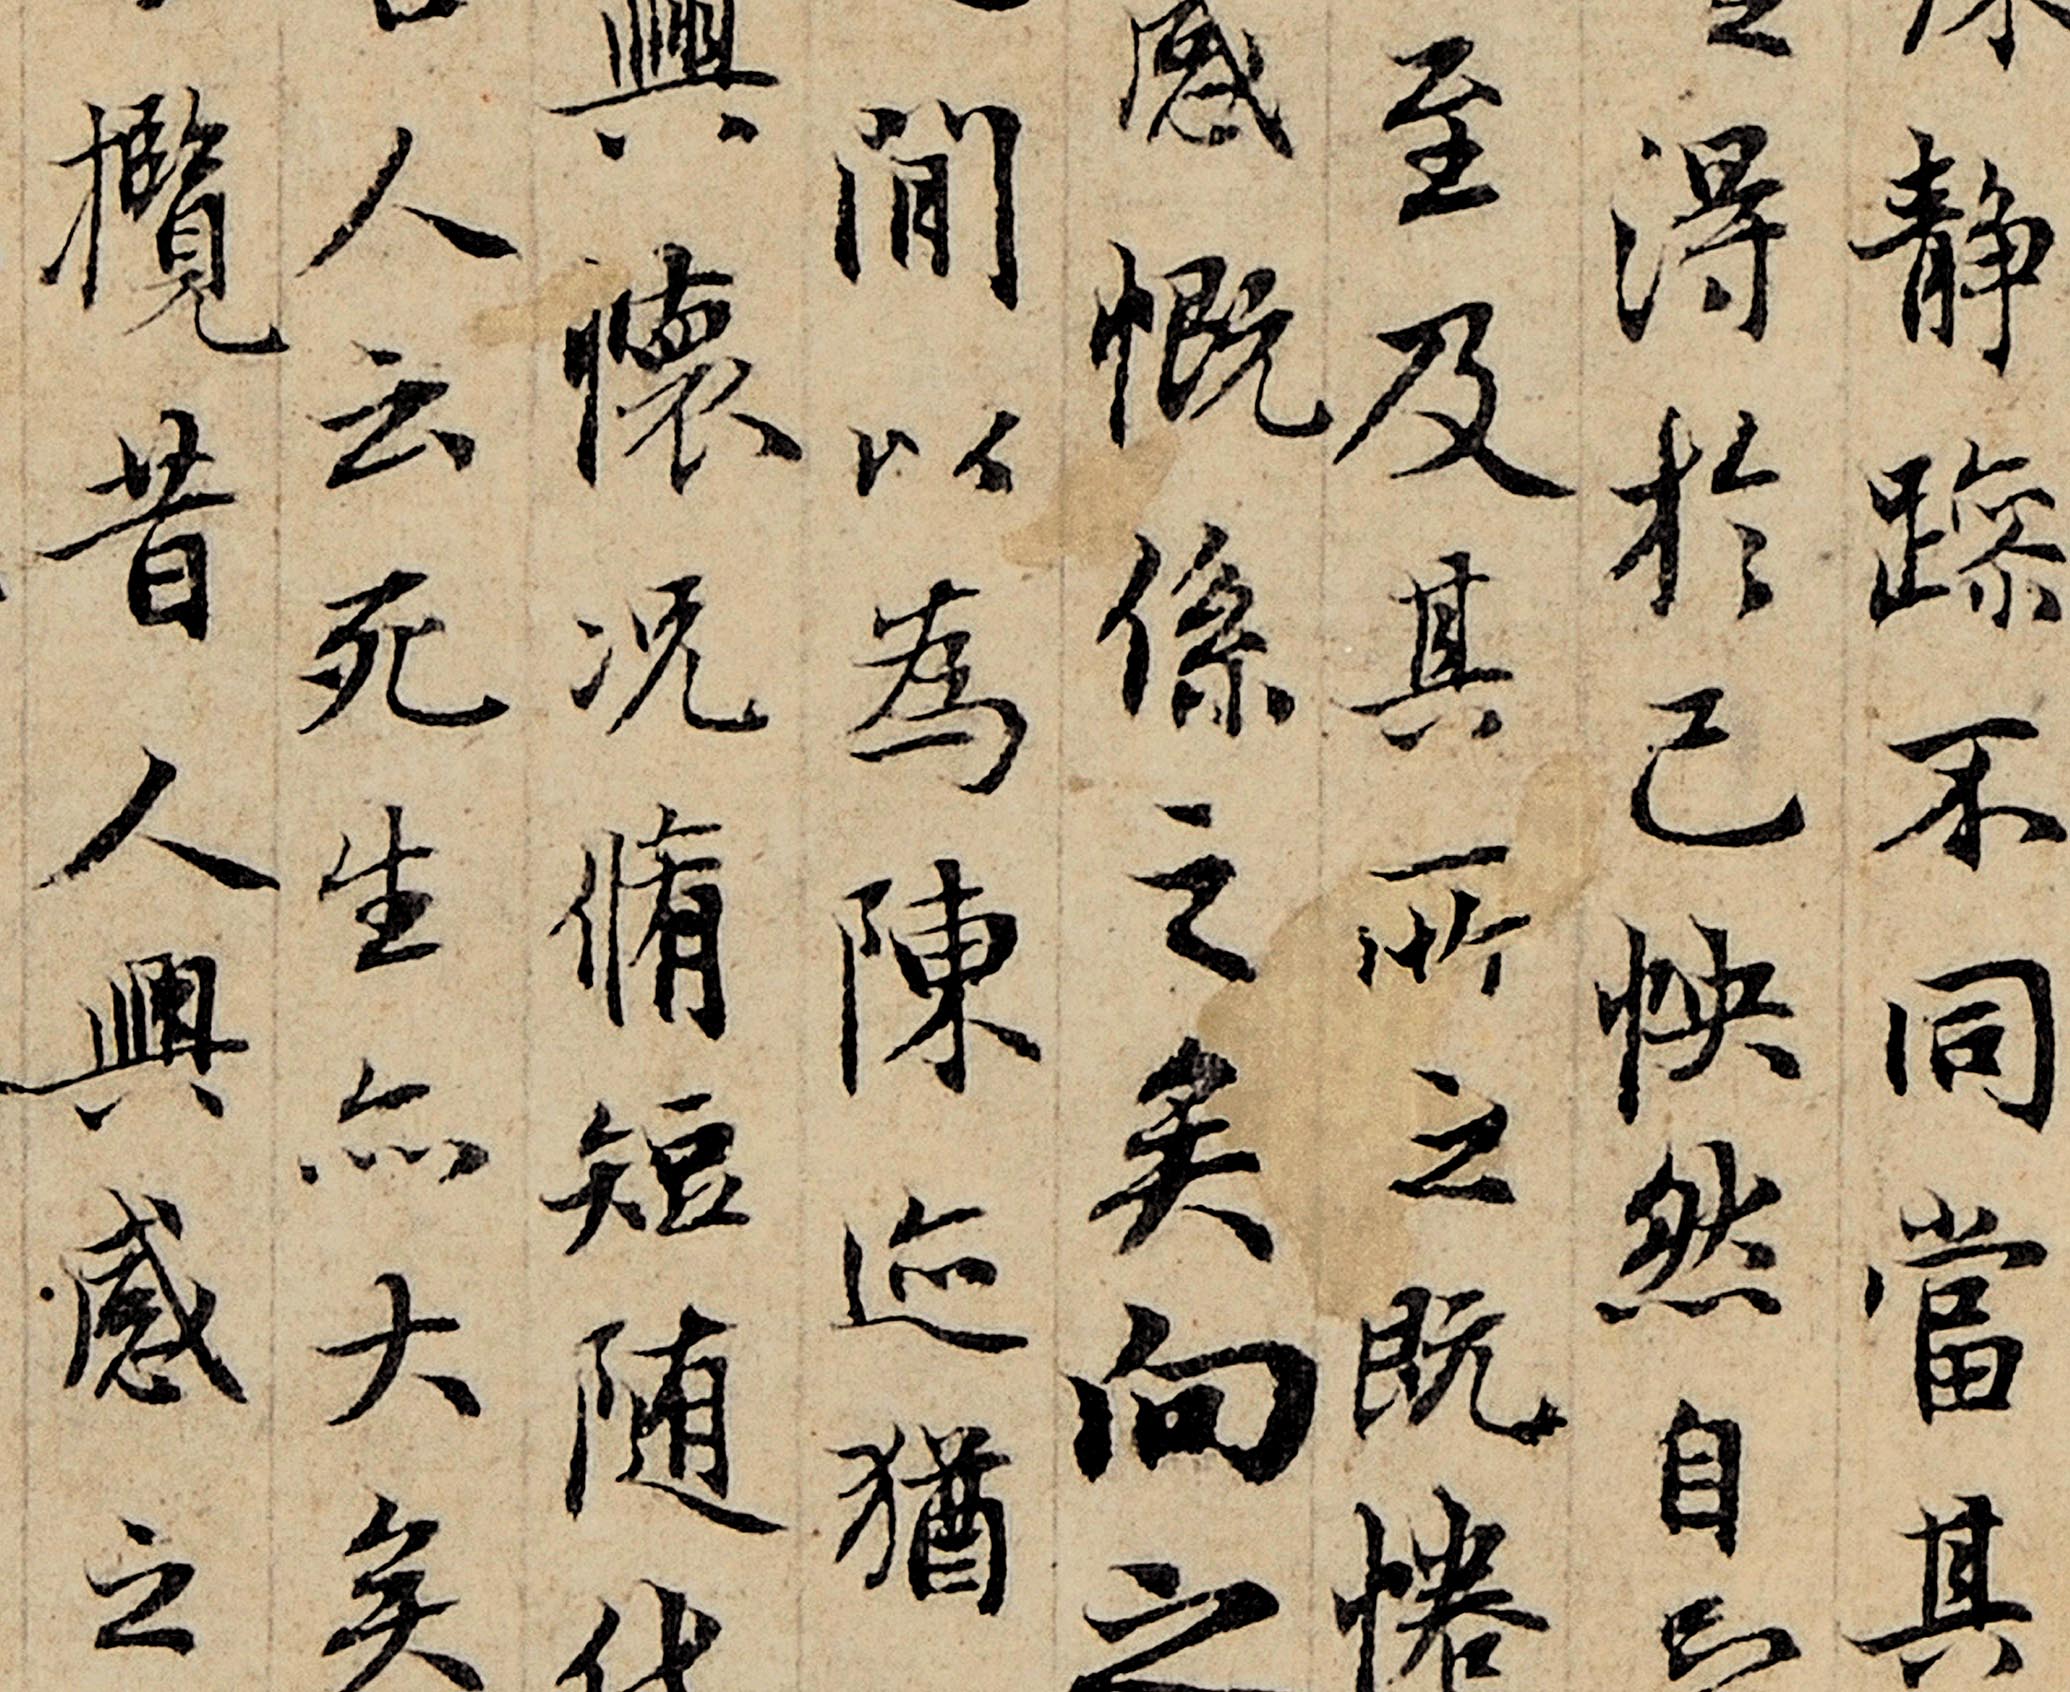 静躁不同當其
得於己怏然自
至及其所之既惓
感慨係之矣向之
間以為陳迹猶
興懷况脩短随
人云死生亦大矣
攬昔人興感之